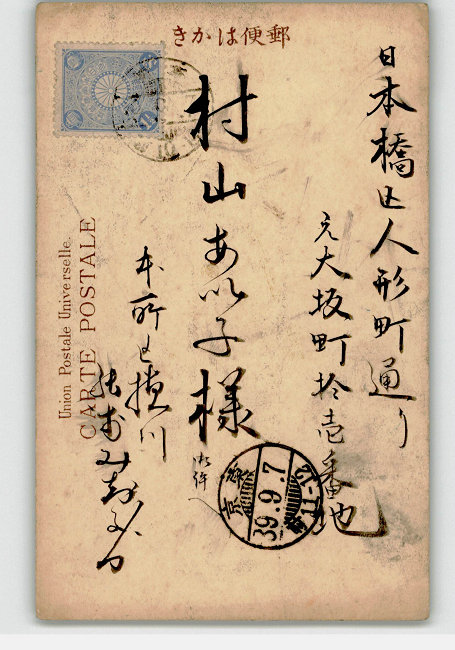 郵便はかき
日本橋区人形町通り
元大坂町拾壱番地
村山あい子様
本所区横川
Union Postale Universelle.
CARTE POSTALE
39.9.7